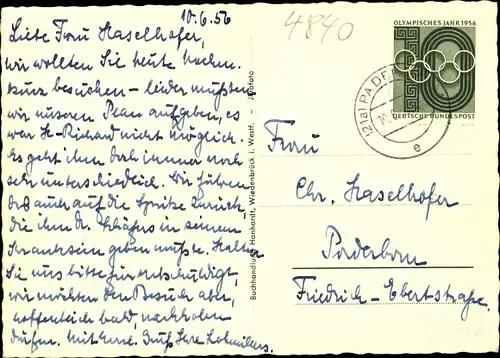 10.6.56
4840
Liebe Frau Haselhofer,
wir wollten Sie heute nachm.
kurz besuchen - leider mußten
wir unseren Plan aufgeben, es
war H. Richard nicht möglich.
Es geht ihm doch immer noch
sehr unterschiedlich. Wir führen
das auch auf die Spritze zurück,
die ihm Dr. in seinem
Kranksein geben mußte. Halten
Sie uns bitte für entschuldigt,
wir möchten den Besuch aber,
hoffentlich bald, nachholen
dürfen. Mit Gruß Ihre
Buchhandlung Hanhardt, Wiedenbrück i. Westf. -
OLYMPISCHES JAHR 1956
DEUTSCHE BUNDESPOST
(21a) PADER
e
Frau
Chr. Haselhofer
Paderborn
Friedrich-Ebertstraße.